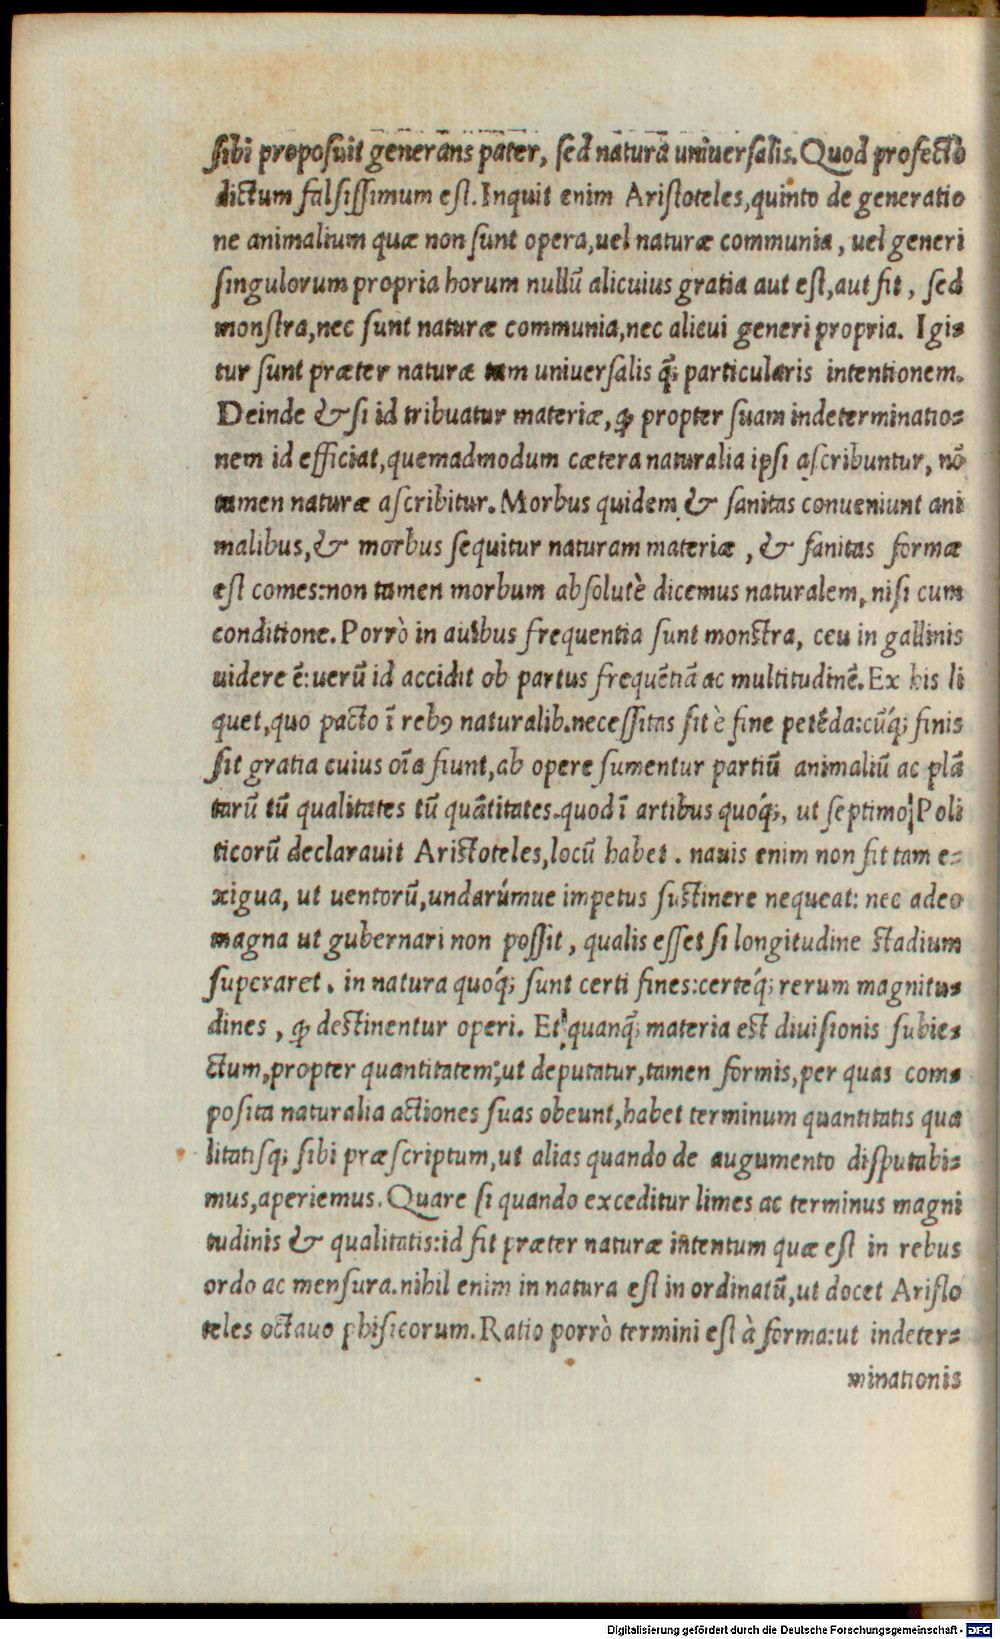 ſibi propoſuit generans pater, ſed natura uniuerſalis. Quod profecto
dictum falſiſſimum eſt. Inquit enim Ariſtoteles, quinto de generatio
ne animalium quæ non ſunt opera, uel naturæ communia, uel generi
ſingulorum propria horum nullũ alicuius gratia aut eſt, aut fit, ſed
monſtra, nec ſunt naturæ communia, nec alicui generi propria. Igi⸗
tur ſunt præter naturæ tam uniuerſalis q̃; particularis intentionem.
Deinde & ſi id tribuatur materiæ, ꝙ propter ſuam indeterminatio⸗
nem id efficiat, quemadmodum cætera naturalia ipſi aſcribuntur, nõ
tamen naturæ aſcribitur. Morbus quidem & ſanitas conueniunt ani
malibus, & morbus ſequitur naturam materiæ, & ſanitas formæ
eſt comes: non tamen morbum abſolutè dicemus naturalem, niſi cum
conditione. Porrò in auibus frequentia ſunt monſtra, ceu in gallinis
uidere ẽ: uerũ id accidit ob partus frequẽtiã ac multitudinẽ. Ex his li
quet, quo pacto ĩ rebꝰ naturalib. neceſſitas ſit è fine petẽda: cũq́; finis
ſit gratia cuius oĩa fiunt, ab opere ſumentur partiũ animaliũ ac plã
tarũ tũ qualitates tũ quãtitates. quod ĩ artibus quoq́;, ut ſeptimo Poli
ticorũ declarauit Ariſtoteles, locũ habet. nauis enim non fit tam e⸗
xigua, ut uentorũ, undarúmue impetus ſuſtinere nequeat: nec adeo
magna ut gubernari non poſſit, qualis eſſet ſi longitudine ſtadium
ſuperaret. in natura quoq́; ſunt certi fines: certeq́; rerum magnitu⸗
dines, ꝙ deſtinentur operi. Et quanq̃; materia eſt diuiſionis ſubie⸗
ctum, propter quantitatem, ut deputatur, tamen formis, per quas com⸗
poſita naturalia actiones ſuas obeunt, habet terminum quantitatis qua
litatiſq; ſibi præſcriptum, ut alias quando de augumento diſputabi⸗
mus, aperiemus. Quare ſi quando exceditur limes ac terminus magni
tudinis & qualitatis: id fit præter naturæ intentum quæ eſt in rebus
ordo ac menſura. nihil enim in natura eſt in ordinatũ, ut docet Ariſto
teles octauo phiſicorum. Ratio porrò termini eſt à forma: ut indeter⸗
minationis
Digitalisierung gefördert durch die Deutsche Forschungsgemeinschaft - DFG